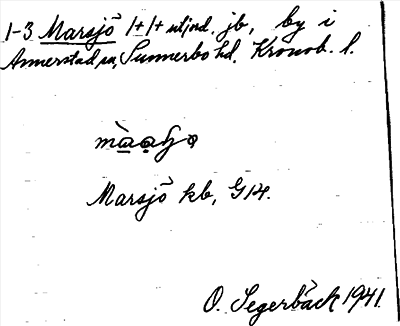 1-3 Marsjö 1+1+ utjord. jb, by i
Annerstad sn, Sunnerbo hd, Kronob. l.
Marsjö kb, G14.
O. Segerbäck 1941.